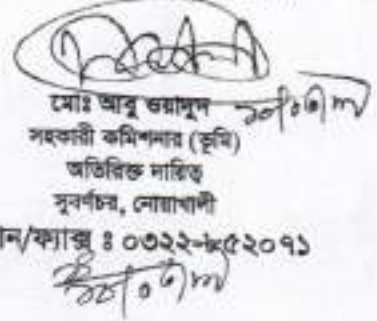 মোঃ আবু ওয়াদুদ
সহকারী কমিশনার (ভূমি)
অতিরিক্ত দায়িত্ব
সুবর্ণচর, নোয়াখালী
ন/ফ্যাক্স ঃ ০৩২২-৮৫২০৭১